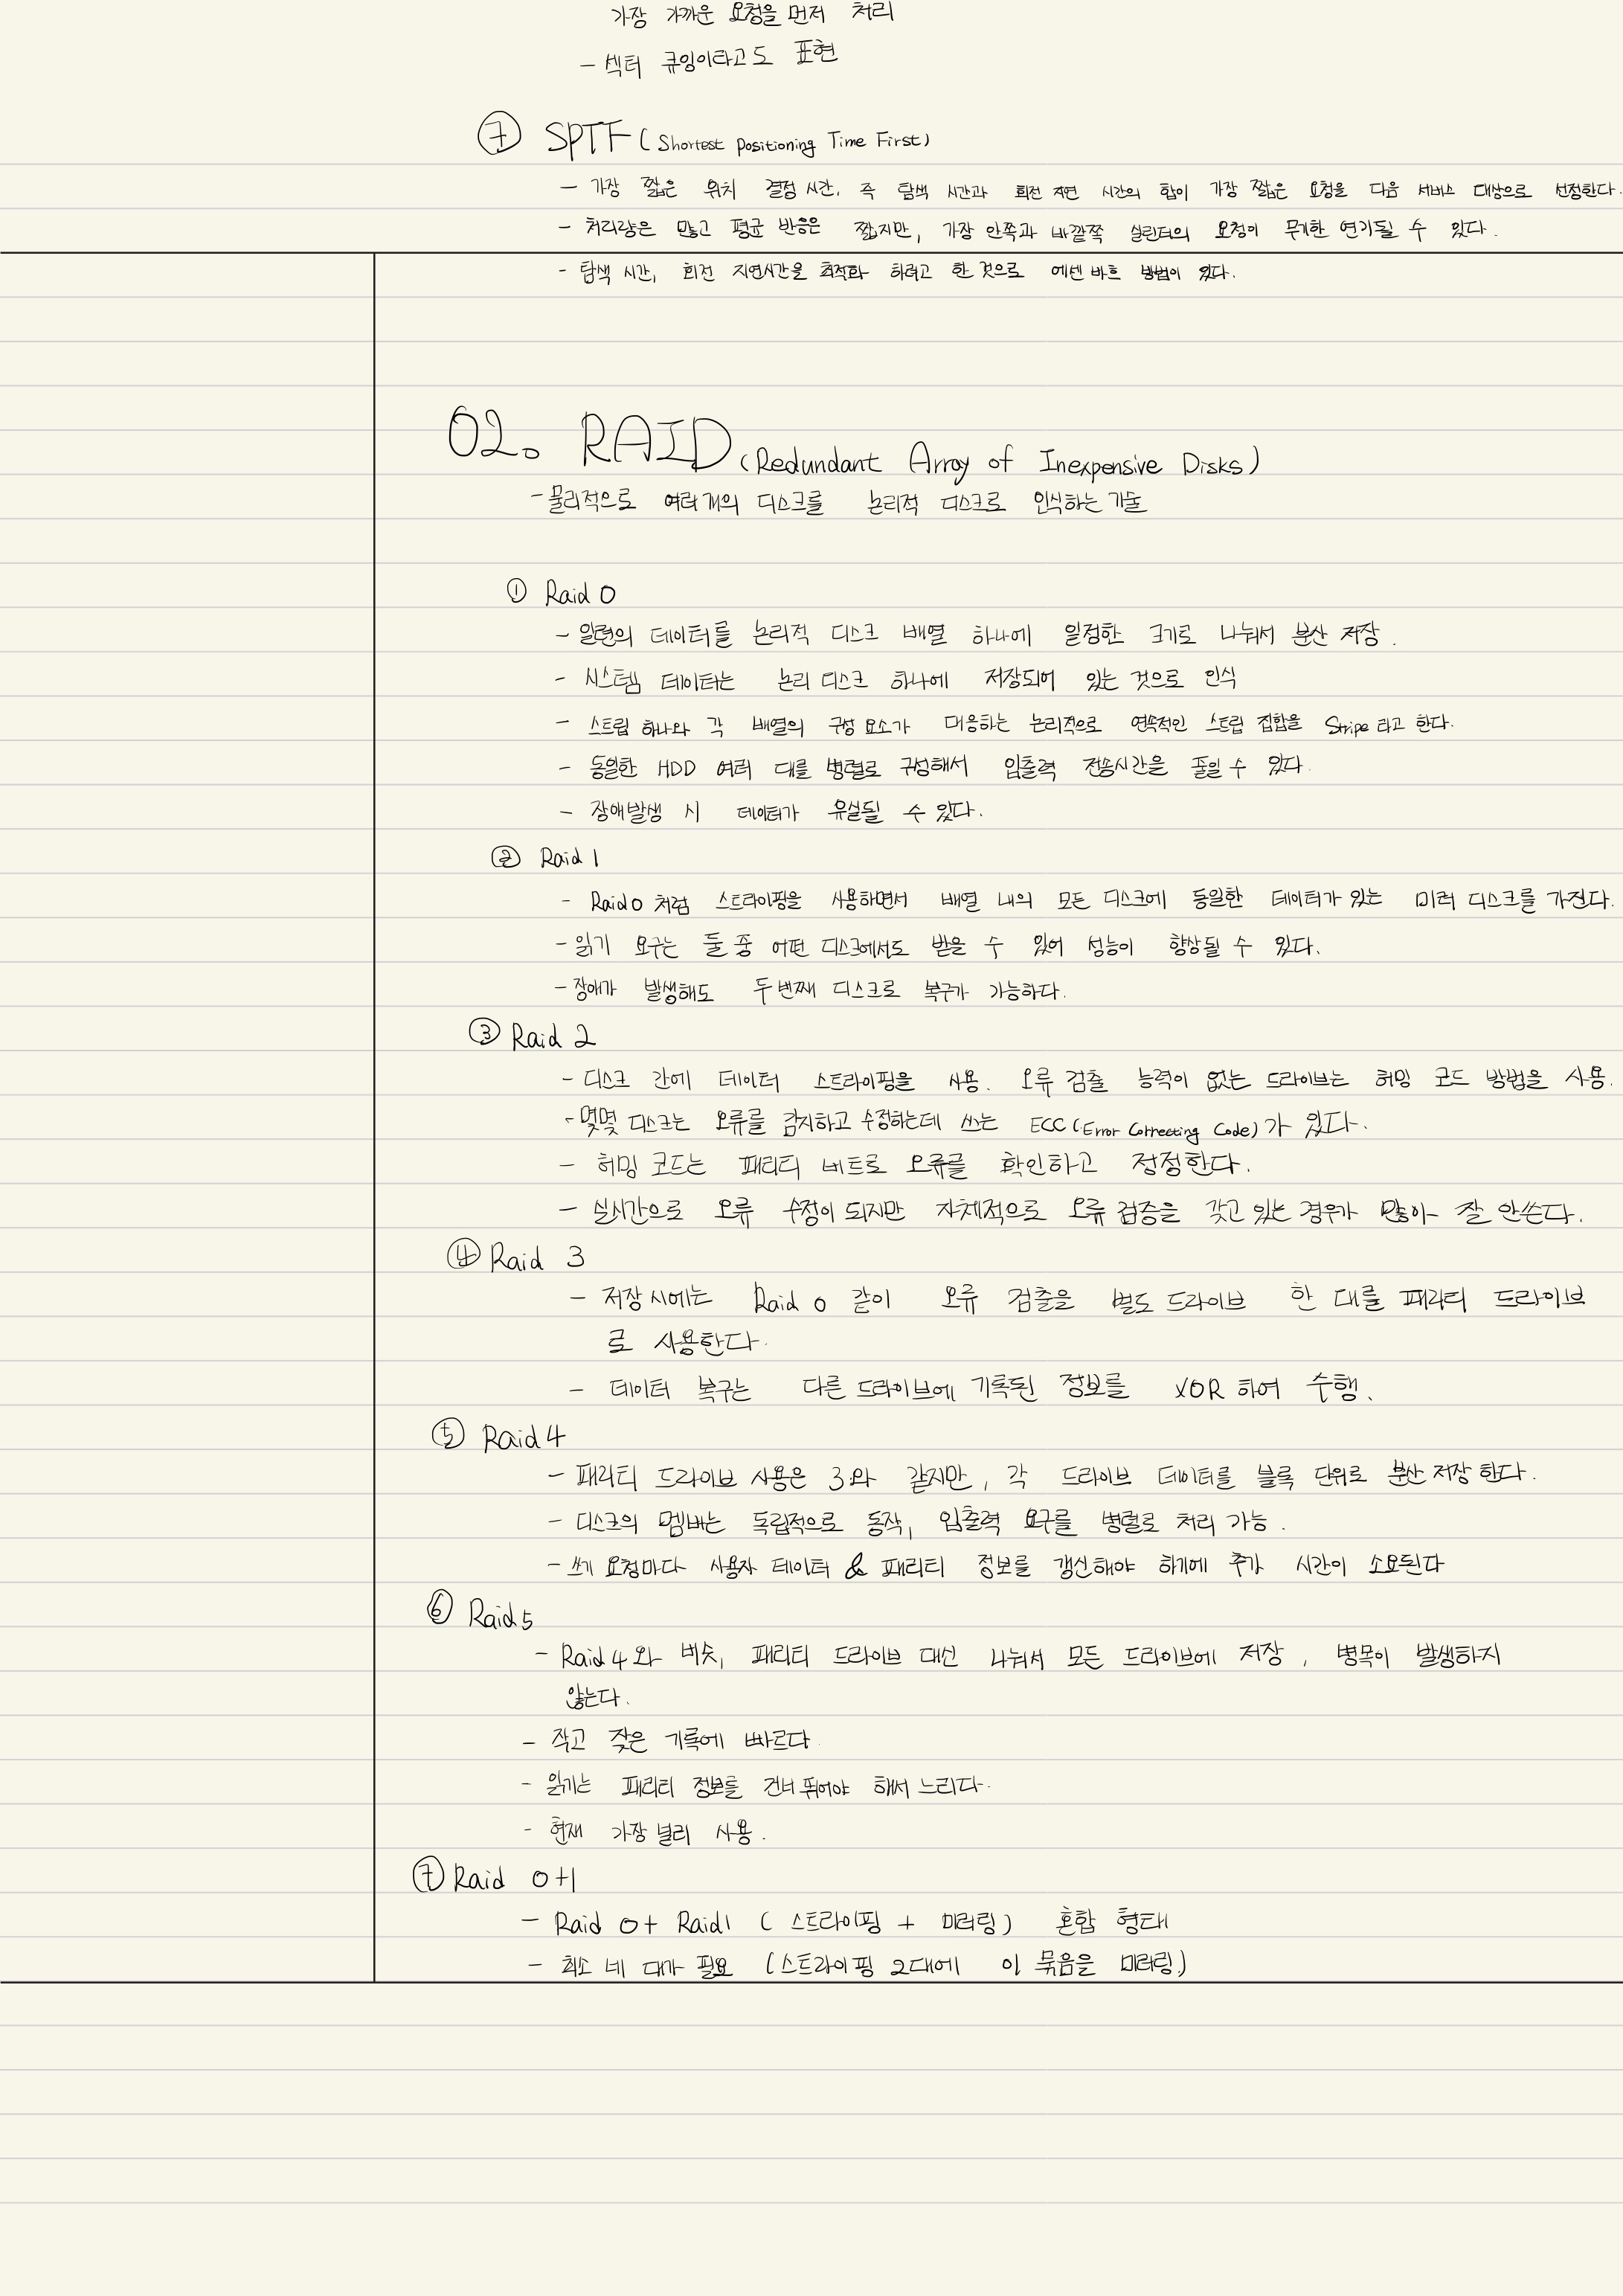 가장 가까운 요청을 먼저 처리
- 섹터 큐잉이라고도 표현
⑦ SPTF (Shortest Positioning Time First)
- 가장 짧은 위치 결정 시간, 즉 탐색 시간과 회전 지연 시간의 합이 가장 짧은 요청을 다음 서비스 대상으로 선정한다.
- 처리량은 많고 평균 반응은 짧지만, 가장 안쪽과 바깥쪽 실린더의 요청이 무기한 연기될 수 있다.
- 탐색 시간, 회전 지연시간을 최적화 하려고 한 것으로 에센바흐 방법이 있다.
02. RAID (Redundant Array of Inexpensive Disks)
- 물리적으로 여러개의 디스크를 논리적 디스크로 인식하는 기술
① Raid 0
- 일련의 데이터를 논리적 디스크 배열 하나에 일정한 크기로 나눠서 분산 저장.
- 시스템 데이터는 논리 디스크 하나에 저장되어 있는 것으로 인식
- 스트립 하나와 각 배열의 구성 요소가 대응하는 논리적으로 연속적인 스트립 집합을 Stripe 라고 한다.
- 동일한 HDD 여러 대를 병렬로 구성해서 입출력 전송시간을 줄일 수 있다.
- 장애발생 시 데이터가 유실될 수 있다.
② Raid 1
- Raid 0 처럼 스트라이핑을 사용하면서 배열 내의 모든 디스크에 동일한 데이터가 있는 미러 디스크를 가진다.
- 읽기 요구는 둘 중 어떤 디스크에서도 받을 수 있어 성능이 향상될 수 있다.
- 장애가 발생해도 두번째 디스크로 복구가 가능하다.
③ Raid 2
- 디스크 간에 데이터 스트라이핑을 사용. 오류 검출 능력이 없는 드라이브는 허밍 코드 방법을 사용.
- 몇몇 디스크는 오류를 감지하고 수정하는데 쓰는 ECC (Error Correcting Code)가 있다.
- 허밍 코드는 패리티 비트로 오류를 확인하고 정정한다.
- 실시간으로 오류 수정이 되지만 자체적으로 오류 검증을 갖고 있는 경우가 많아 잘 안쓴다.
④ Raid 3
- 저장 시에는 Raid 0 같이 오류 검출을 별도 드라이브 한 대를 패리티 드라이브
로 사용한다.
- 데이터 복구는 다른 드라이브에 기록된 정보를 XOR 하여 수행.
⑤ Raid 4
- 패리티 드라이브 사용은 3와 같지만, 각 드라이브 데이터를 블록 단위로 분산 저장 한다.
- 디스크의 멤버는 독립적으로 동작, 입출력 요구를 병렬로 처리 가능.
- 쓰기 요청마다 사용자 데이터 & 패리티 정보를 갱신해야 하기에 추가 시간이 소요된다
⑥ Raid 5
- Raid 4 와 비슷, 패리티 드라이브 대신 나눠서 모든 드라이브에 저장, 병목이 발생하지
않는다.
- 작고 잦은 기록에 빠르다.
- 읽기는 패리티 정보를 건너 뛰어야 해서 느리다.
- 현재 가장 널리 사용.
⑦ Raid 0+1
- Raid 0 + Raid1 (스트라이핑 + 미러링) 혼합 형태
- 최소 네 대가 필요 (스트라이핑 2대에 이 묶음을 미러링.)